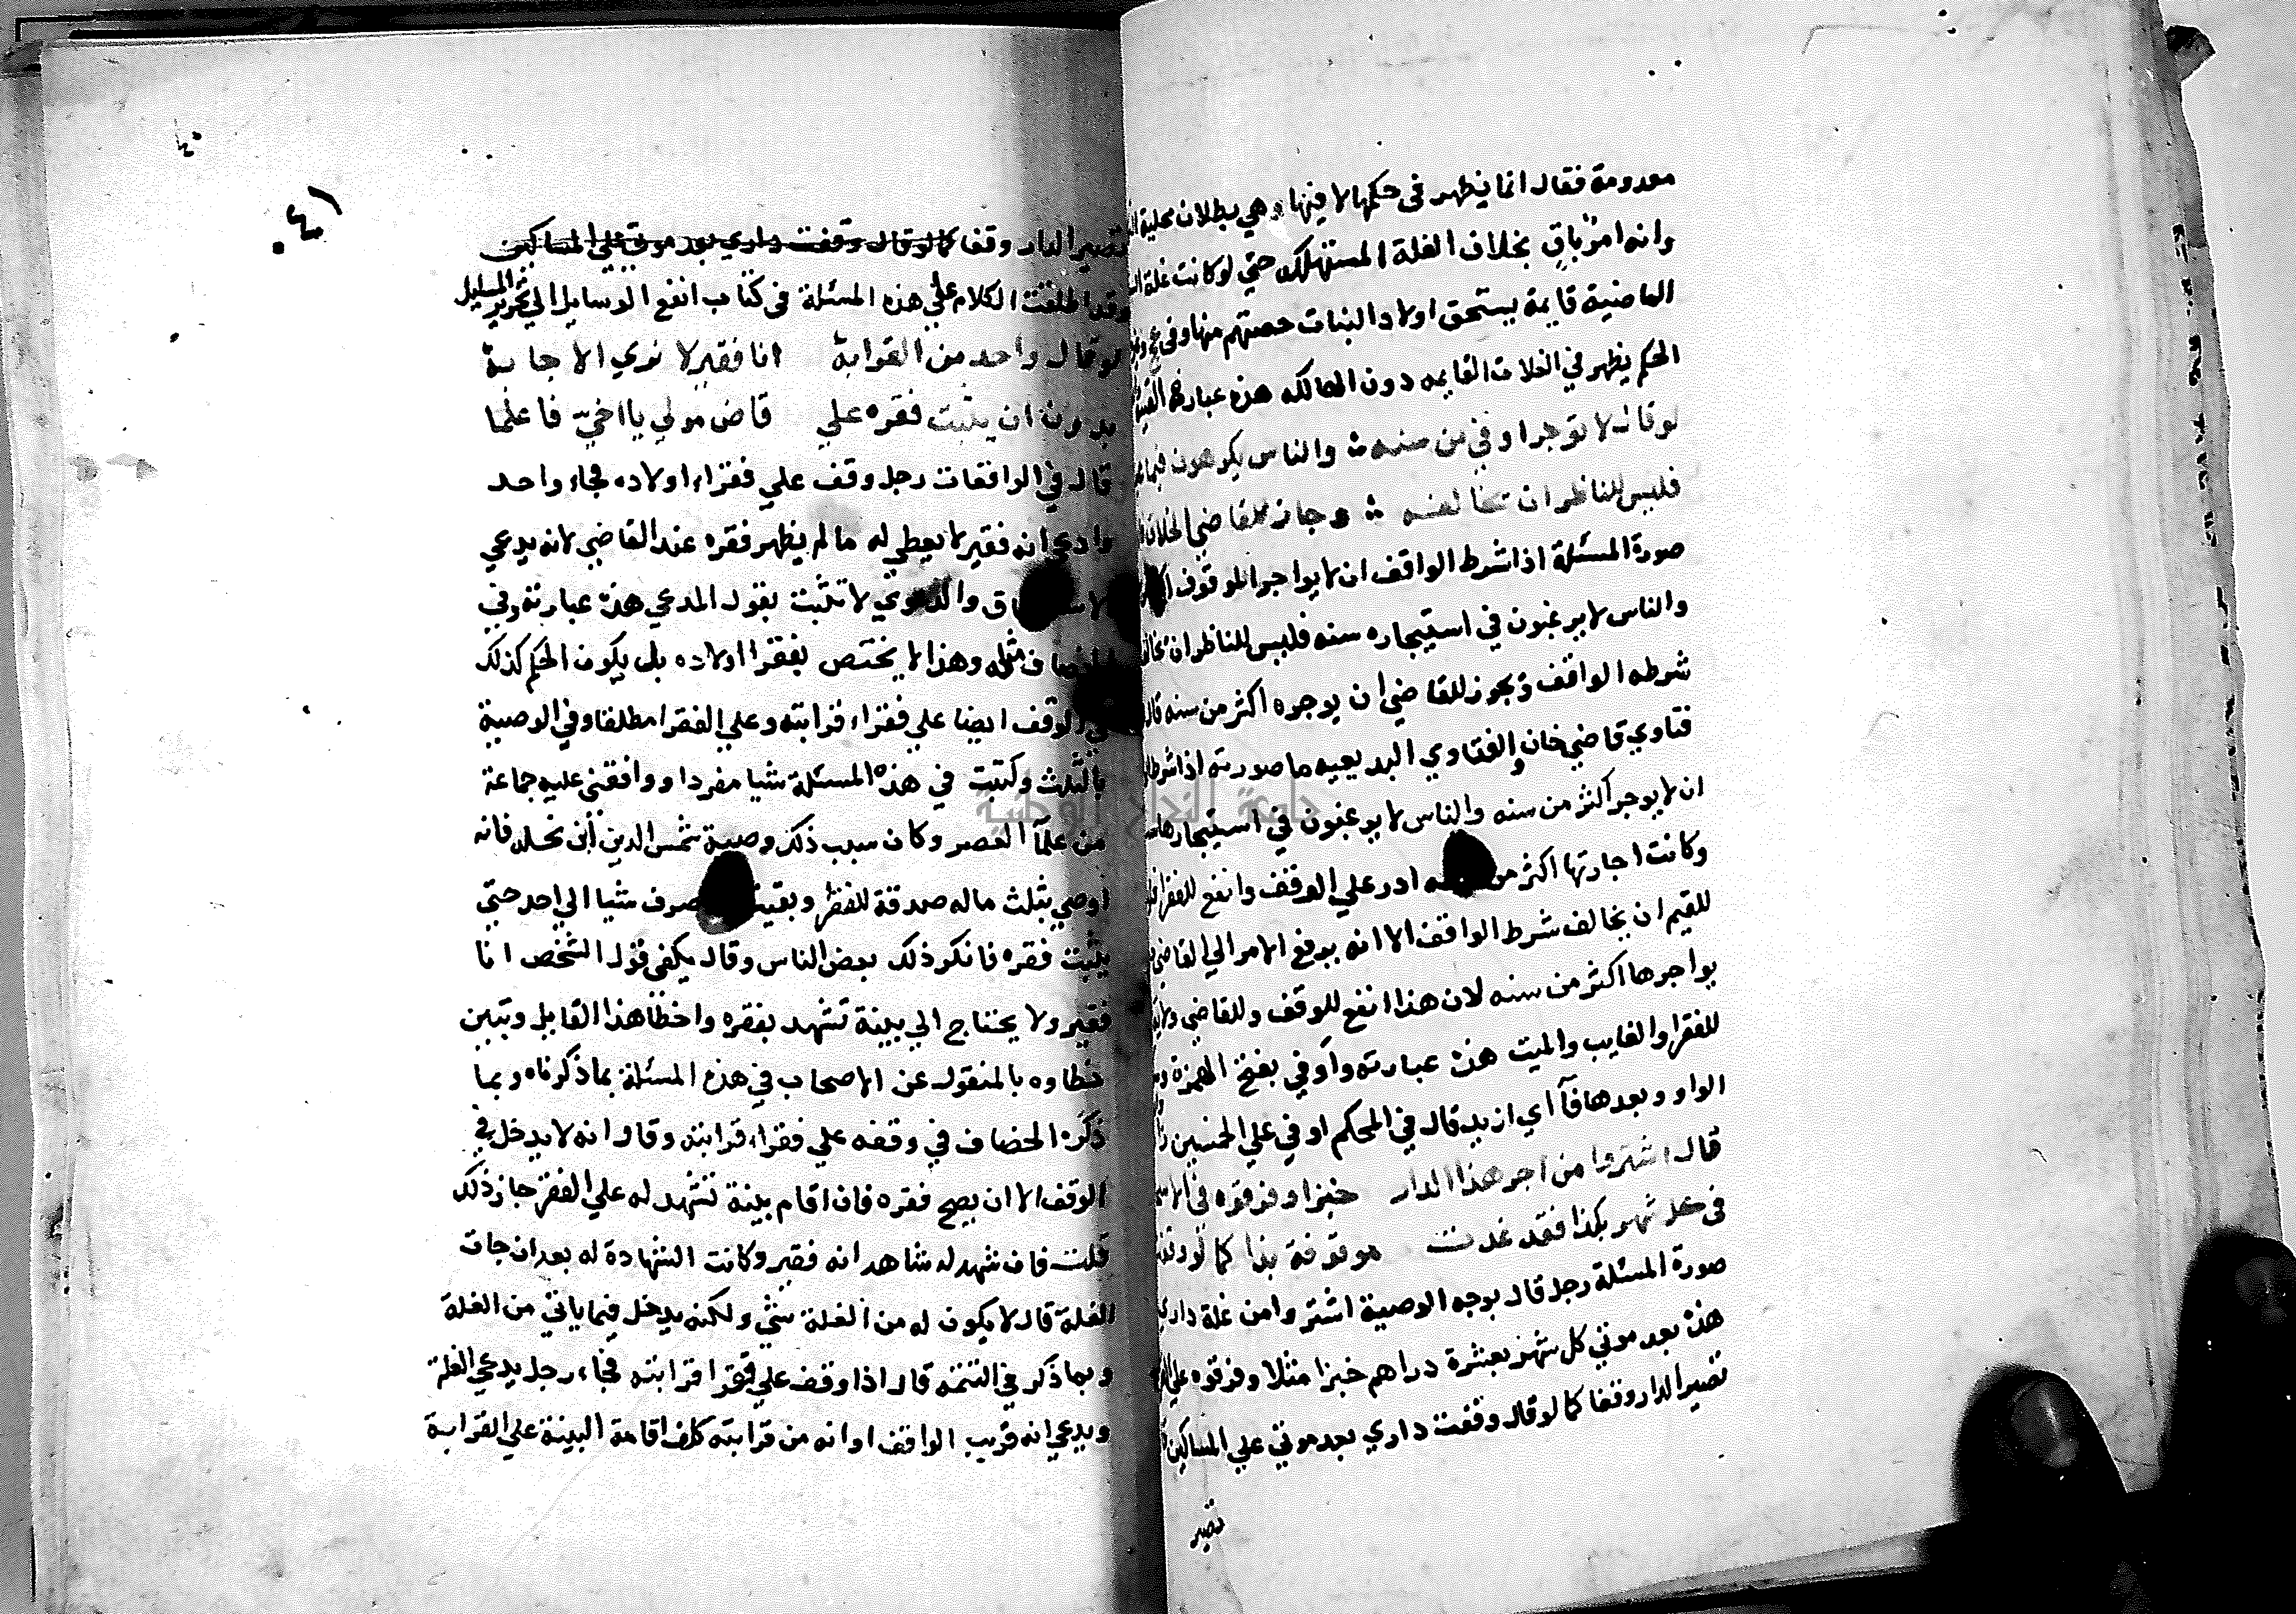 معدومة فقال انما يظهر في حكمها لا فيها وهي بطلان محلية
وانه امر باق بخلاف الغلة المستهلكة حتي لو كانت غلة
الماضية قايمة يستحق اولاد البنات حصتهم منها وفي
الحكم يظهر في الغلات القايمه دون الهالكه هذه عبارة
لو قال لا توجرا وفي من سنه والناس يكرهون فيما
فليس للناظر ان تخالفنه وجاز للقاضي الخلاف
صورة المسئلة اذا شرط الواقف ان لا يواجر الموقوف
والناس لا يرغبون في استيجاره سنه فليس للناظر ان
شرطه الواقف وتجوز للقاضي ان يوجره اكثر من سنه
فتاوي قاضي خان والفتاوي البديعيه ما صورته اذا شرط
ان لا يوجر اكثر من سنه والناس لا يرغبون في استيجارها
وكانت اجارتها اكثر من سنه ادر علي الوقف وانفع للفقرا
للقيم ان يخالف شرط الواقف الا انه يرفع الامر الي القاضي
يواجرها اكثر من سنه لان هذا انفع للوقف وللقاضي
للفقرا والغايب والميت هذه عبارته واوفي بفتح الهمزه
الواو وبعدها فآ اي ازيد قال في المحكم اوفي علي الخمسين
قال اشتروا من اجر هذا الدار خبزا وفرقوه في
في كل شهر بكذا فقد غدت موقوفة بذا كما لو
صورة المسئلة رجل قال بوجه الوصية اشتروا من غلة داري
هذه بعد موتي كل شهر بعشرة دراهم خبزا مثلا وفرقوه علي
تصير الدار وقفا كما لو قال وقفت داري بعد موتي علي المساكين
تصير
٤٠
٤١
تصير الدار وقفا كما لو قال وقفت داري بعد موتي علي المساكين
وقد اطلقت الكلام علي هذه المسئلة في كتاب انفع الوسايل الي تحرير المسايل
لو قال واحد من القرابة انا فقير لا نري الاجابة
بدون ان يثبت فقره علي قاض مولي يا اخي فاعلما
قال في الواقعات رجل وقف علي فقراء اولاده فجاء واحد
وادعي انه فقير لا يعطي له ما لم يظهر فقره عند القاضي لانه يدعي
والدعوي لا تثبت بقول المدعي هذه عبارته وفي
الخصاف مثله وهذا لا يختص بفقرا اولاده بل يكون الحكم كذلك
في الوقف ايضا علي فقراء قرابته وعلي الفقرا مطلقا وفي الوصية
بالثلث وكتبت في هذه المسئلة شيا مفردا ووافقني عليه جماعة
من علمآ العصر وكان سبب ذلك وصية شمس الدين ابن نحله فانه
اوصي بثلث ماله صدقة للفقرا وبقيت صرف شيا الي احد حتي
يثبت فقره فانكر ذلك بعض الناس وقال يكفي قول الشخص انا
فقير ولا يحتاج الي بينة تشهد بفقره واخطا هذا القايل وتبين
خطاوه بالمنقول عن الاصحاب في هذه المسئلة بما ذكرناه وبما
ذكره الخصاف في وقفه علي فقراء قرابته وقال انه لا يدخل في
الوقف الا ان يصح فقره فان اقام بينة تشهد له علي الفقر جاز ذلك
قلت فان شهد له شاهد انه فقير وكانت الشهادة له بعد ان جات
الغلة قال لا يكون له من الغلة شي ولكنه يدخل فيما ياتي من الغلة
وبما ذكر في التتمه قال اذا وقف علي فقرا قرابته فجاء رجل يدعي الغلة
ويدعي انه قريب الواقف او انه من قرابته كلف اقامة البينة علي القرابة